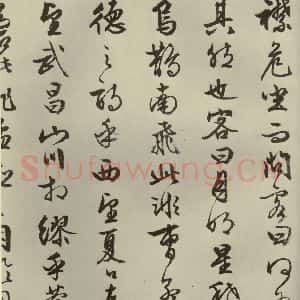 襟危坐而問客曰何
其然也客曰月明星稀
烏鵲南飛此非曹孟
德之詩乎西望夏口東
望武昌山川相繆乎蒼
Shufawang.cn